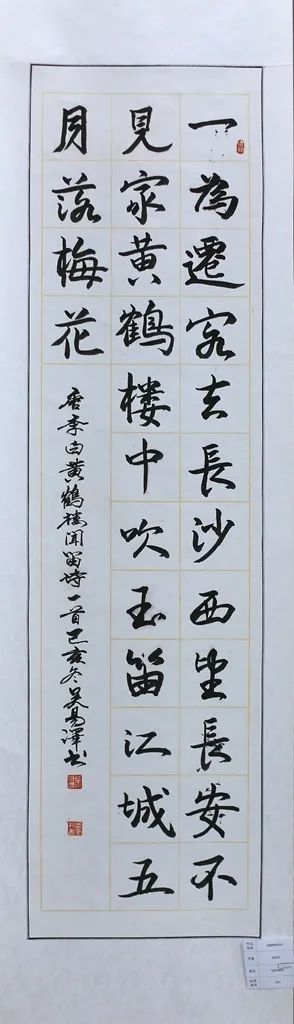 一為遷客去長沙西望長安不
見家黄鶴楼中吹玉笛江城五
月落梅花
唐李白黄鶴楼聞笛诗一首己亥冬吴易澤书